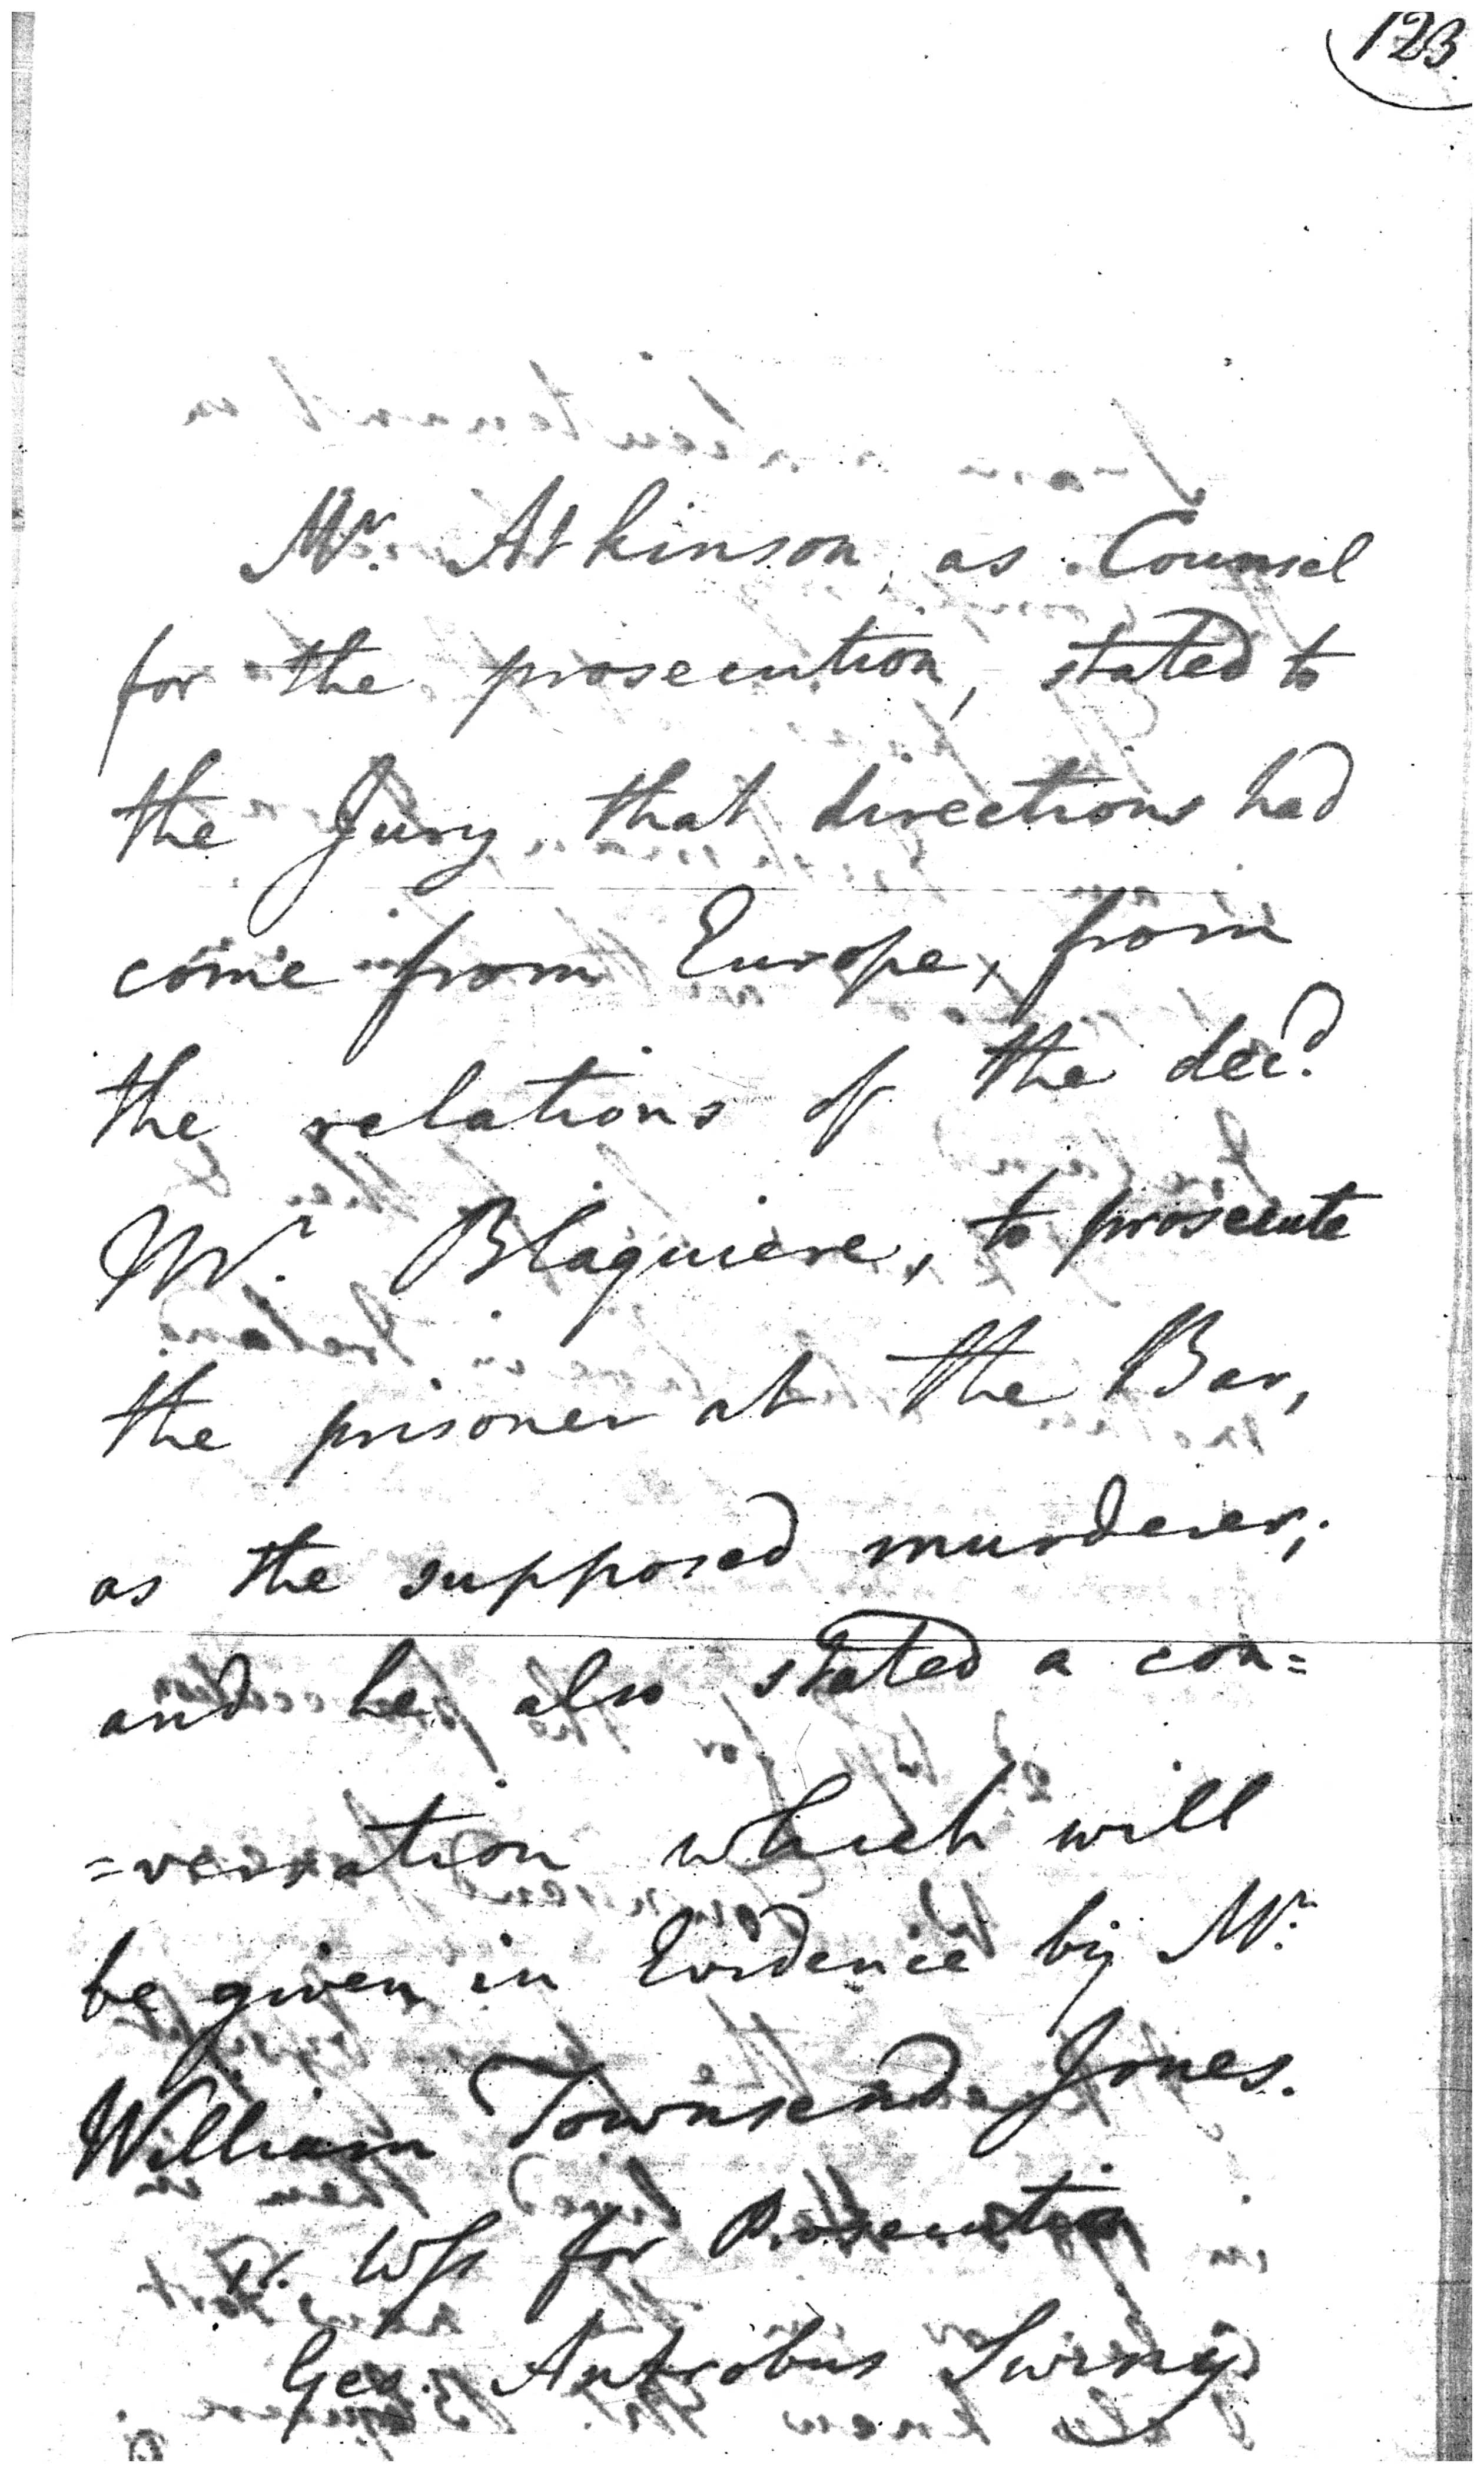 123.
Mr. Atkinson, as Counsel
for the prosecution, stated to
the Jury, that directions had
come from Europe, from
the relations of the decd.
Mr. Blaquiere, to prosecute
the prisoner at the Bar,
as the supposed murderer;
and he also stated a con=
=versation which will
be given in Evidence by Mr.
William Townsend Jones.
Wss for Prosecution
Geo. Antrobus Swiney